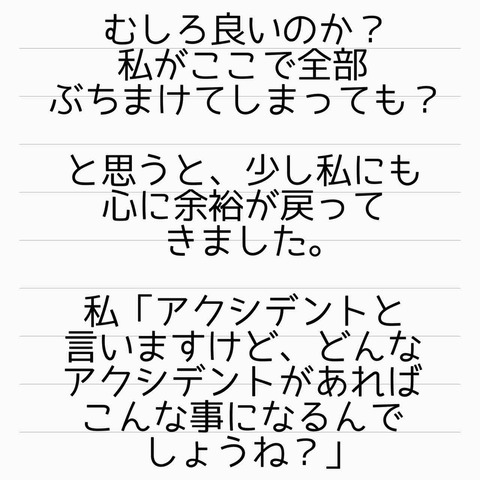 むしろ良いのか？
私がここで全部
ぶちまけてしまっても？
と思うと、少し私にも
心に余裕が戻って
きました。
私「アクシデントと
言いますけど、どんな
アクシデントがあれば
こんな事になるんで
しょうね？」